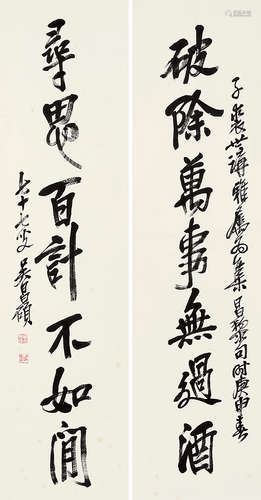 子裴世講雅屬為集昌黎句時庚申春
破除萬事無過酒
尋思百計不如閒
七十七叟吳昌碩